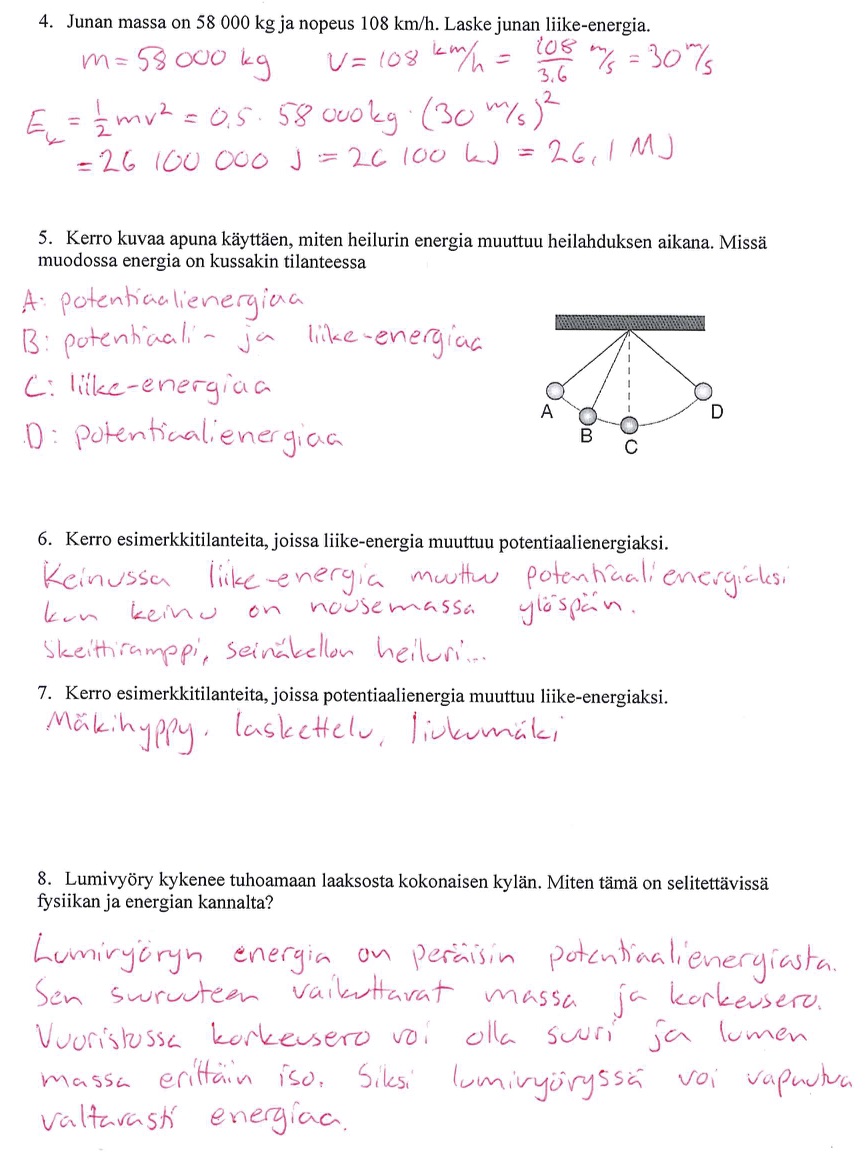 4. Junan massa on 58 000 kg ja nopeus 108 km/h. Laske junan liike-energia.
m = 58 000 kg v = 108 km/h = 108/3.6 m/s = 30 m/s
Ek = 1/2 mv² = 0,5 · 58 000 kg · (30 m/s)²
= 26 100 000 J = 26 100 kJ = 26,1 MJ
5. Kerro kuvaa apuna käyttäen, miten heilurin energia muuttuu heilahduksen aikana. Missä
muodossa energia on kussakin tilanteessa
A: potentiaalienergiaa
B: potentiaali- ja liike-energiaa
C: liike-energiaa
D: potentiaalienergiaa
A
B
C
D
6. Kerro esimerkkitilanteita, joissa liike-energia muuttuu potentiaalienergiaksi.
Keinussa liike-energia muuttuu potentiaalienergiaksi
kun keinu on nousemassa ylöspäin.
Skeittiramppi, seinäkellon heiluri...
7. Kerro esimerkkitilanteita, joissa potentiaalienergia muuttuu liike-energiaksi.
Mäkihyppy, laskettelu, liukumäki
8. Lumivyöry kykenee tuhoamaan laaksosta kokonaisen kylän. Miten tämä on selitettävissä
fysiikan ja energian kannalta?
Lumivyöryn energia on peräisin potentiaalienergiasta.
Sen suuruuteen vaikuttavat massa ja korkeusero.
Vuoristossa korkeusero voi olla suuri ja lumen
massa erittäin iso. Siksi lumivyöryssä voi vapautua
valtavasti energiaa.